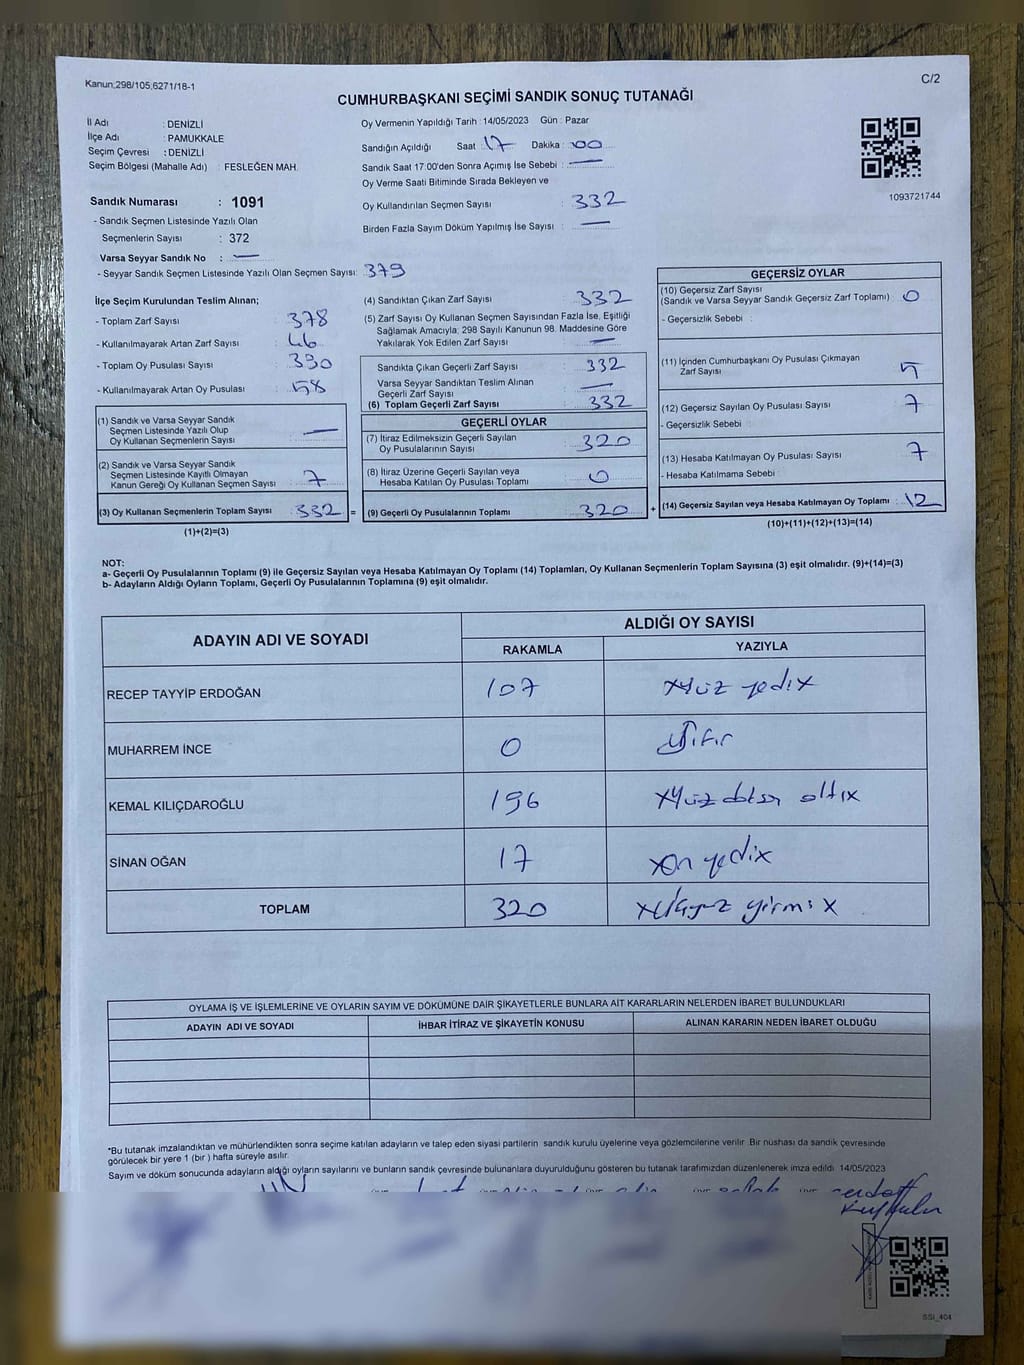 Kanun;298/105;6271/18-1
C/2
CUMHURBAŞKANI SEÇİMİ SANDIK SONUÇ TUTANAĞI
İl Adı : DENİZLİ
İlçe Adı : PAMUKKALE
Seçim Çevresi : DENİZLİ
Seçim Bölgesi (Mahalle Adı) : FESLEĞEN MAH.
Oy Vermenin Yapıldığı Tarih : 14/05/2023 Gün : Pazar
Sandığın Açıldığı Saat : 17 Dakika : 00
Sandık Saat 17:00'den Sonra Açımış İse Sebebi : —
Oy Verme Saati Bitiminde Sırada Bekleyen ve
Oy Kullandırılan Seçmen Sayısı : 332
Birden Fazla Sayım Döküm Yapılmış İse Sayısı : —
1093721744
Sandık Numarası : 1091
- Sandık Seçmen Listesinde Yazılı Olan
Seçmenlerin Sayısı : 372
Varsa Seyyar Sandık No : —
- Seyyar Sandık Seçmen Listesinde Yazılı Olan Seçmen Sayısı: 379
İlçe Seçim Kurulundan Teslim Alınan;
- Toplam Zarf Sayısı : 378
- Kullanılmayarak Artan Zarf Sayısı : 46
- Toplam Oy Pusulası Sayısı : 390
- Kullanılmayarak Artan Oy Pusulası : 58
(1) Sandık ve Varsa Seyyar Sandık
Seçmen Listesinde Yazılı Olup
Oy Kullanan Seçmenlerin Sayısı : —
(2) Sandık ve Varsa Seyyar Sandık
Seçmen Listesinde Kayıtlı Olmayan
Kanun Gereği Oy Kullanan Seçmen Sayısı : 7
(3) Oy Kullanan Seçmenlerin Toplam Sayısı : 332 =
(1)+(2)=(3)
(4) Sandıktan Çıkan Zarf Sayısı : 332
(5) Zarf Sayısı Oy Kullanan Seçmen Sayısından Fazla İse, Eşitliği
Sağlamak Amacıyla; 298 Sayılı Kanunun 98. Maddesine Göre
Yakılarak Yok Edilen Zarf Sayısı : —
Sandıkta Çıkan Geçerli Zarf Sayısı : 332
Varsa Seyyar Sandıktan Teslim Alınan
Geçerli Zarf Sayısı : —
(6) Toplam Geçerli Zarf Sayısı : 332
GEÇERLİ OYLAR
(7) İtiraz Edilmeksizin Geçerli Sayılan
Oy Pusulalarının Sayısı : 320
(8) İtiraz Üzerine Geçerli Sayılan veya
Hesaba Katılan Oy Pusulası Toplamı : 0
(9) Geçerli Oy Pusulalarının Toplamı : 320 +
GEÇERSİZ OYLAR
(10) Geçersiz Zarf Sayısı
(Sandık ve Varsa Seyyar Sandık Geçersiz Zarf Toplamı) : 0
- Geçersizlik Sebebi :
(11) İçinden Cumhurbaşkanı Oy Pusulası Çıkmayan
Zarf Sayısı : 5
(12) Geçersiz Sayılan Oy Pusulası Sayısı : 7
- Geçersizlik Sebebi :
(13) Hesaba Katılmayan Oy Pusulası Sayısı : 7
- Hesaba Katılmama Sebebi :
(14) Geçersiz Sayılan veya Hesaba Katılmayan Oy Toplamı : 12
(10)+(11)+(12)+(13)=(14)
NOT:
a- Geçerli Oy Pusulalarının Toplamı (9) ile Geçersiz Sayılan veya Hesaba Katılmayan Oy Toplamı (14) Toplamları, Oy Kullanan Seçmenlerin Toplam Sayısına (3) eşit olmalıdır. (9)+(14)=(3)
b- Adayların Aldığı Oyların Toplamı, Geçerli Oy Pusulalarının Toplamına (9) eşit olmalıdır.
ADAYIN ADI VE SOYADI
ALDIĞI OY SAYISI
RAKAMLA YAZIYLA
RECEP TAYYİP ERDOĞAN 107 xyüz yedix
MUHARREM İNCE 0 Sıfır
KEMAL KILIÇDAROĞLU 196 xyüz doksan altıx
SİNAN OĞAN 17 xon yedix
TOPLAM 320 xüçyüz yirmi x
OYLAMA İŞ VE İŞLEMLERİNE VE OYLARIN SAYIM VE DÖKÜMÜNE DAİR ŞİKAYETLERLE BUNLARA AİT KARARLARIN NELERDEN İBARET BULUNDUKLARI
ADAYIN ADI VE SOYADI İHBAR İTİRAZ VE ŞİKAYETİN KONUSU ALINAN KARARIN NEDEN İBARET OLDUĞU
*Bu tutanak imzalandıktan ve mühürlendikten sonra seçime katılan adayların ve talep eden siyasi partilerin sandık kurulu üyelerine veya gözlemcilerine verilir. Bir nüshası da sandık çevresinde
görülecek bir yere 1 (bir ) hafta süreyle asılır.
Sayım ve döküm sonucunda adayların aldığı oyların sayılarını ve bunların sandık çevresinde bulunanlara duyurulduğunu gösteren bu tutanak tarafımızdan düzenlenerek imza edildi. 14/05/2023
SSI_404